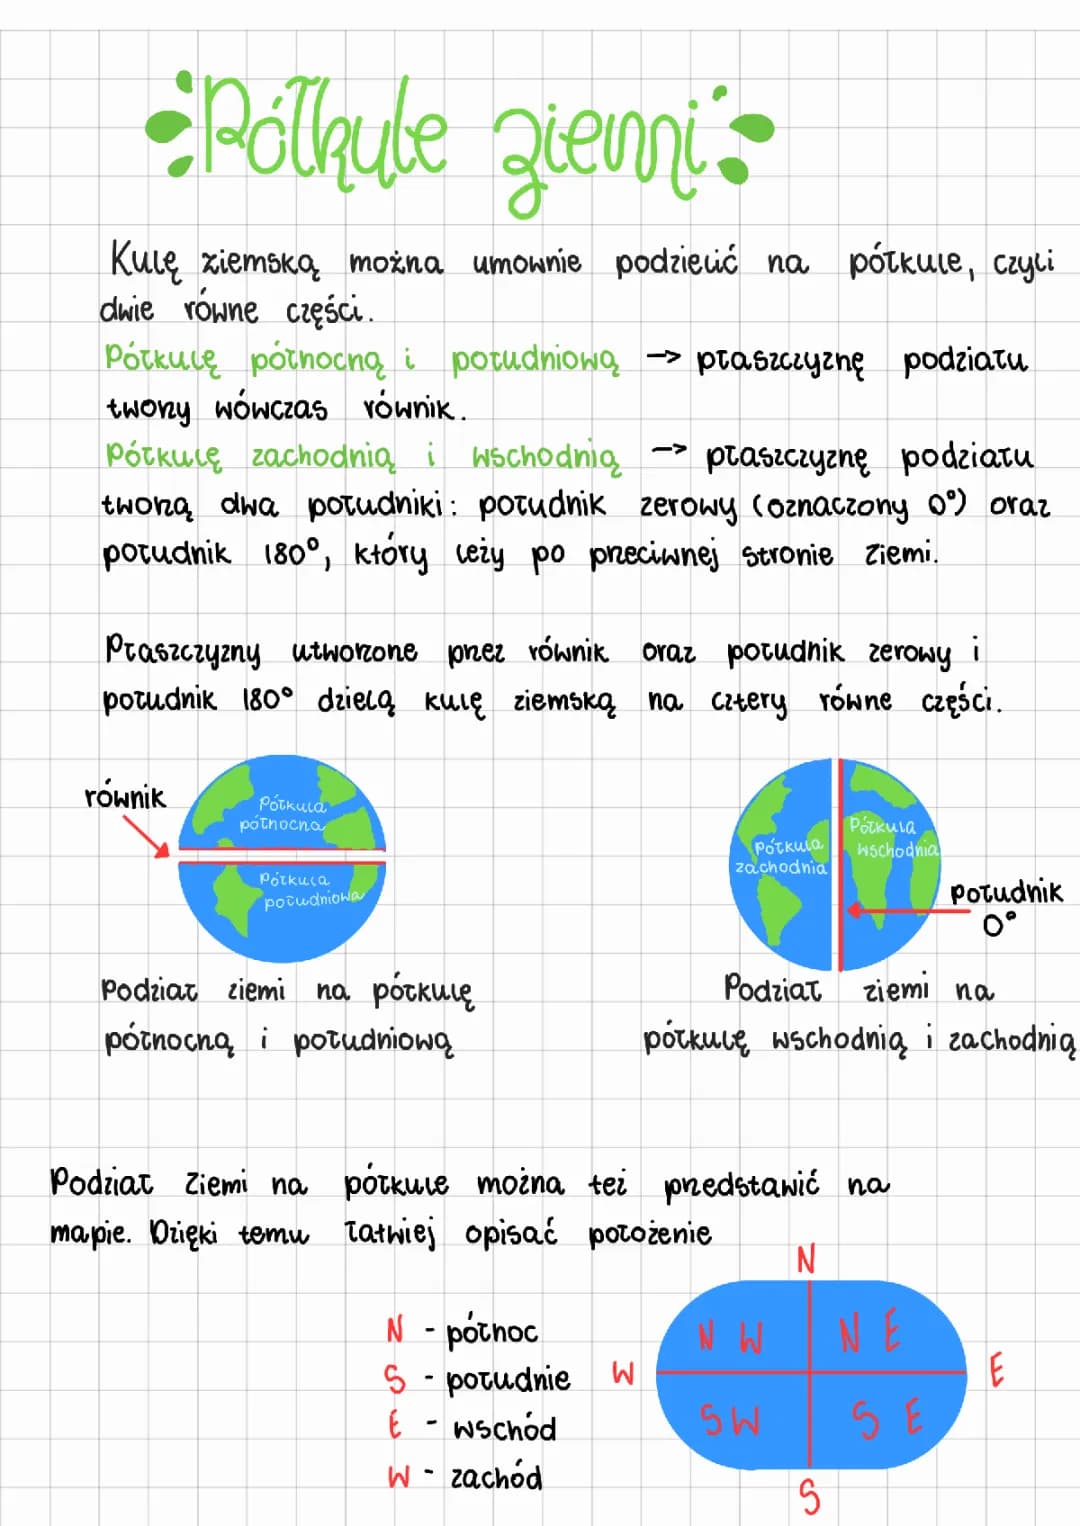 Półkule ziemi
Kulę ziemską można umownie podzielić na półkule, czyli
dwie równe części.
Półkulę północną i południową -> płaszczyznę podziału
tworzy wówczas równik.
Półkulę zachodnią i wschodnią -> płaszczyznę podziału
tworzą dwa południki: południk zerowy (oznaczony 0°) oraz
południk 180°, który leży po przeciwnej stronie Ziemi.
Płaszczyzny utworzone przez równik oraz południk zerowy i
południk 180° dzielą kulę ziemską na cztery równe części.
równik
Półkula
północna
Półkula
południowa
Podział ziemi na półkulę
północną i południową
Półkula
zachodnia
Półkula
wschodnia
południk
0°
Podział ziemi na
półkulę wschodnią i zachodnią
Podział Ziemi na półkule można też przedstawić na
mapie. Dzięki temu łatwiej opisać położenie
N - północ
S - południe
E - wschód
W - zachód
N
N W N E
W E
S W S E
S